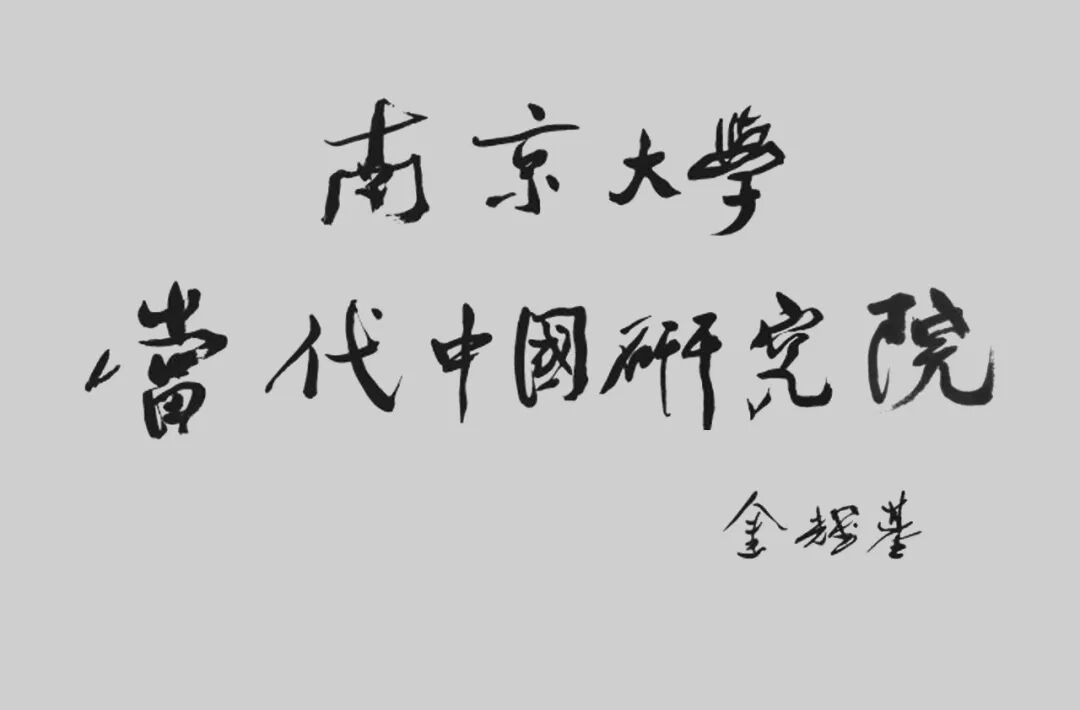 南京大學
當代中國研究院
金耀基